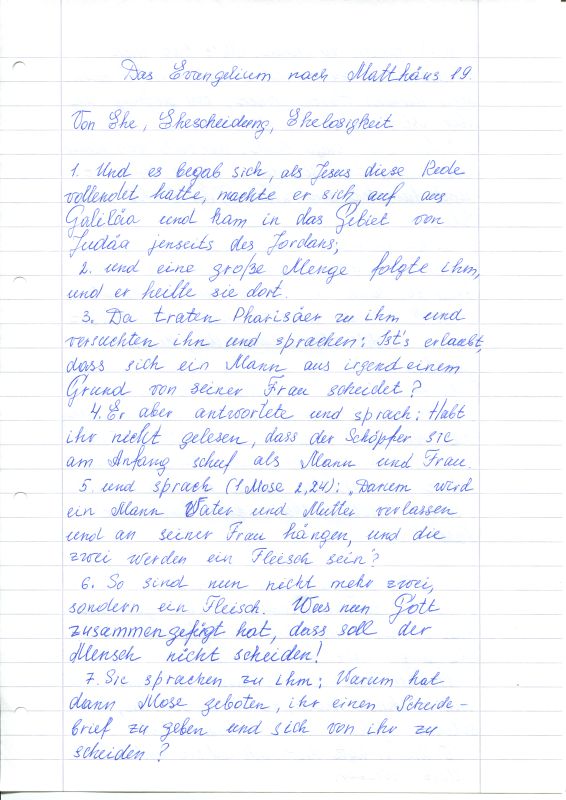 Das Evangelium nach Matthäus 19.
Von Ehe, Ehescheidung, Ehelosigkeit
1. Und es begab sich, als Jesus diese Rede
vollendet hatte, machte er sich auf aus
Galiläa und kam in das Gebiet von
Judäa jenseits des Jordans;
2. und eine große Menge folgte ihm,
und er heilte sie dort.
3. Da traten Pharisäer zu ihm und
versuchten ihn und sprachen: Ist's erlaubt,
dass sich ein Mann aus irgendeinem
Grund von seiner Frau scheidet?
4. Er aber antwortete und sprach: Habt
ihr nicht gelesen, dass der Schöpfer sie
am Anfang schuf als Mann und Frau.
5. und sprach (1 Mose 2,24): „Darum wird
ein Mann Vater und Mutter verlassen
und an seiner Frau hängen, und die
zwei werden ein Fleisch sein"?
6. So sind nun nicht mehr zwei,
sondern ein Fleisch. Was nun Gott
zusammengefügt hat, dass soll der
Mensch nicht scheiden!
7. Sie sprachen zu ihm: Warum hat
dann Mose geboten, ihr einen Scheide-
brief zu geben und sich von ihr zu
scheiden?